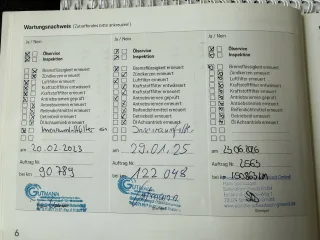 Wartungsnachweis (Zutreffendes bitte ankreuzen!)
Ja / Nein
Ölservice
Inspektion
Bremsflüssigkeit erneuert
Zündkerzen erneuert
Luftfilter erneuert
Kraftstofffilter erneuert
Kraftstofffilter entwässert
Antriebsriemen geprüft
Antriebsriemen erneuert
Zahnriemen erneuert
Getriebeöl erneuert
Öl Achsantrieb erneuert
Innenraumfilter
am 20.02.2023
Auftrag Nr.
bei km 90 789
GUTMANN
Ja / Nein
Ölservice
Inspektion
Bremsflüssigkeit erneuert
Zündkerzen erneuert
Luftfilter erneuert
Kraftstofffilter erneuert
Kraftstofffilter entwässert
Antriebsriemen geprüft
Antriebsriemen erneuert
Zahnriemen erneuert
Getriebeöl erneuert
Öl Achsantrieb erneuert
Innenraumfilter
am 29.01.25
Auftrag Nr.
bei km 122 048
Ja / Nein
Ölservice
Inspektion
Bremsflüssigkeit erneuert
Zündkerzen erneuert
Luftfilter erneuert
Kraftstofffilter erneuert
Kraftstofffilter entwässert
Antriebsriemen geprüft
Antriebsriemen erneuert
Zahnriemen erneuert
Getriebeöl erneuert
Öl Achsantrieb erneuert
am
Auftrag Nr. 2565
bei km
6